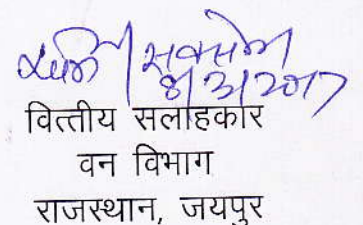 8/3/2017
वित्तीय सलाहकार
वन विभाग
राजस्थान, जयपुर